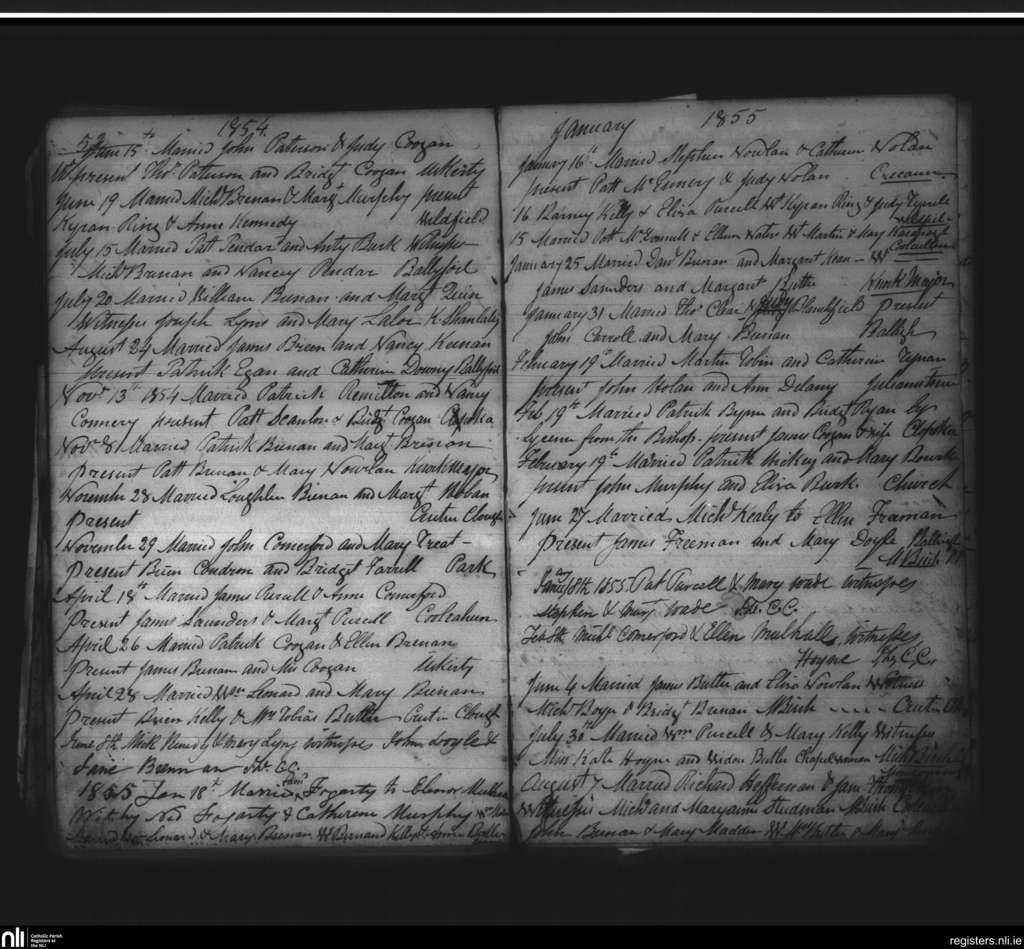 1854.
June 15th Married John Paterson & Judy Coogan
present Thos Paterson and Bridgt Coogan Uskerty
June 19 Married Michl Brenan & Margt Murphy present
Kyran Ring & Anne Kennedy Wildfield
July 15 Married Pat and Burk
Michl Brenan and Nancy Ballyfoil
July 20 Married William Brenan and Margt Quin
Witnesses Joseph Lyons and Mary Lalor
August 24 Married James Breen and Nancy
present Patrick Egan and Catherin Downy Ballyfoil
Novr 13th 1854 Married Patrick and Nancy
Connery present Patt Scanlon & Bridgt Coogan
Novr 81 Married Patrick Brenan and Margt Brenan
Present Patt Brenan & Mary Nowlan
November 28 Married Loughlin Brenan and Margt
Present Clough
November 29 Married John Comerford and Mary Treat
Present Brien Condron and Bridget Farrell Park
April 18th Married James Purcell & Anne Comerford
Present James Saunders & Margt Purcell Coolcaheen
April 26 Married Patrick Coogan & Ellen Brenan
Present James Brenan and Mrs Coogan Uskerty
April 28 Married Wm Leonard and Mary Brenan
Present Brien Kelly & Mrs Tobias Butler Clough
June 8th Mick & Mary Lyng witnesses John Doyle &
Jane Brennan Thy. C.C.
1855 Jan 18th Married James Fogarty to Elenor
With by Ned Fogarty & Catherine Murphy
Leonard & Mary Brenan W Bernard Kelly & Anne Butler
January 1855
January 16th Married Stephen Nowlan & Catherin Nolan
present Patt McEnnery & Judy Nolan
16 Barney Kelly & Eliza Purcell Wt Kyran Ring & Judy Tyrrell
15 Married Patt & Ellen Waters Wt Martin & Mary
January 25 Married Danl Brenan and Margaret Kean W
James Saunders and Margaret Butler
January 31 Married Thos Clear & present
John Carroll and Mary Brenan
February 19th Married Martin Tobin and Catherin Tynan
present John Holan and Ann Delany Julianstown
Feb 19th Married Patrick Byrne and Bridgt Ryan by
Lycence from the Bishop present James Coogan & wife
February 19th Married Patrick Hickey and Mary Bowe
present John Murphy and Eliza Burk Church
June 27 Married Michl Kealy to Ellen Freeman
Present James Freeman and Mary Doyle
M Birch
Jany 18th 1855 Pat Purcell & Mary Wade witnesses
Stephen & Mary Wade Thy. C.C.
Feb 8th Michl Comerford & Ellen Mulhall, witnesses
Hoyne Thy C.C.
June 4 Married James Butler and Eliza Nowlan Witness
Michl Boyn & Bridgt Brenan M Birch
July 30 Married Wm Purcell & Mary Kelly Witnesses
Miss Kate Hoyne and Widow Butler Chapel Michl Birch
August 7 Married Richard Heffernan & Jane
Witnesses Michl and Maryanne Studman M Birch
John Brenan & Mary Madden W Wm Butler & Mary
nli
Catholic Parish
Registers at
the NLI
registers.nli.ie